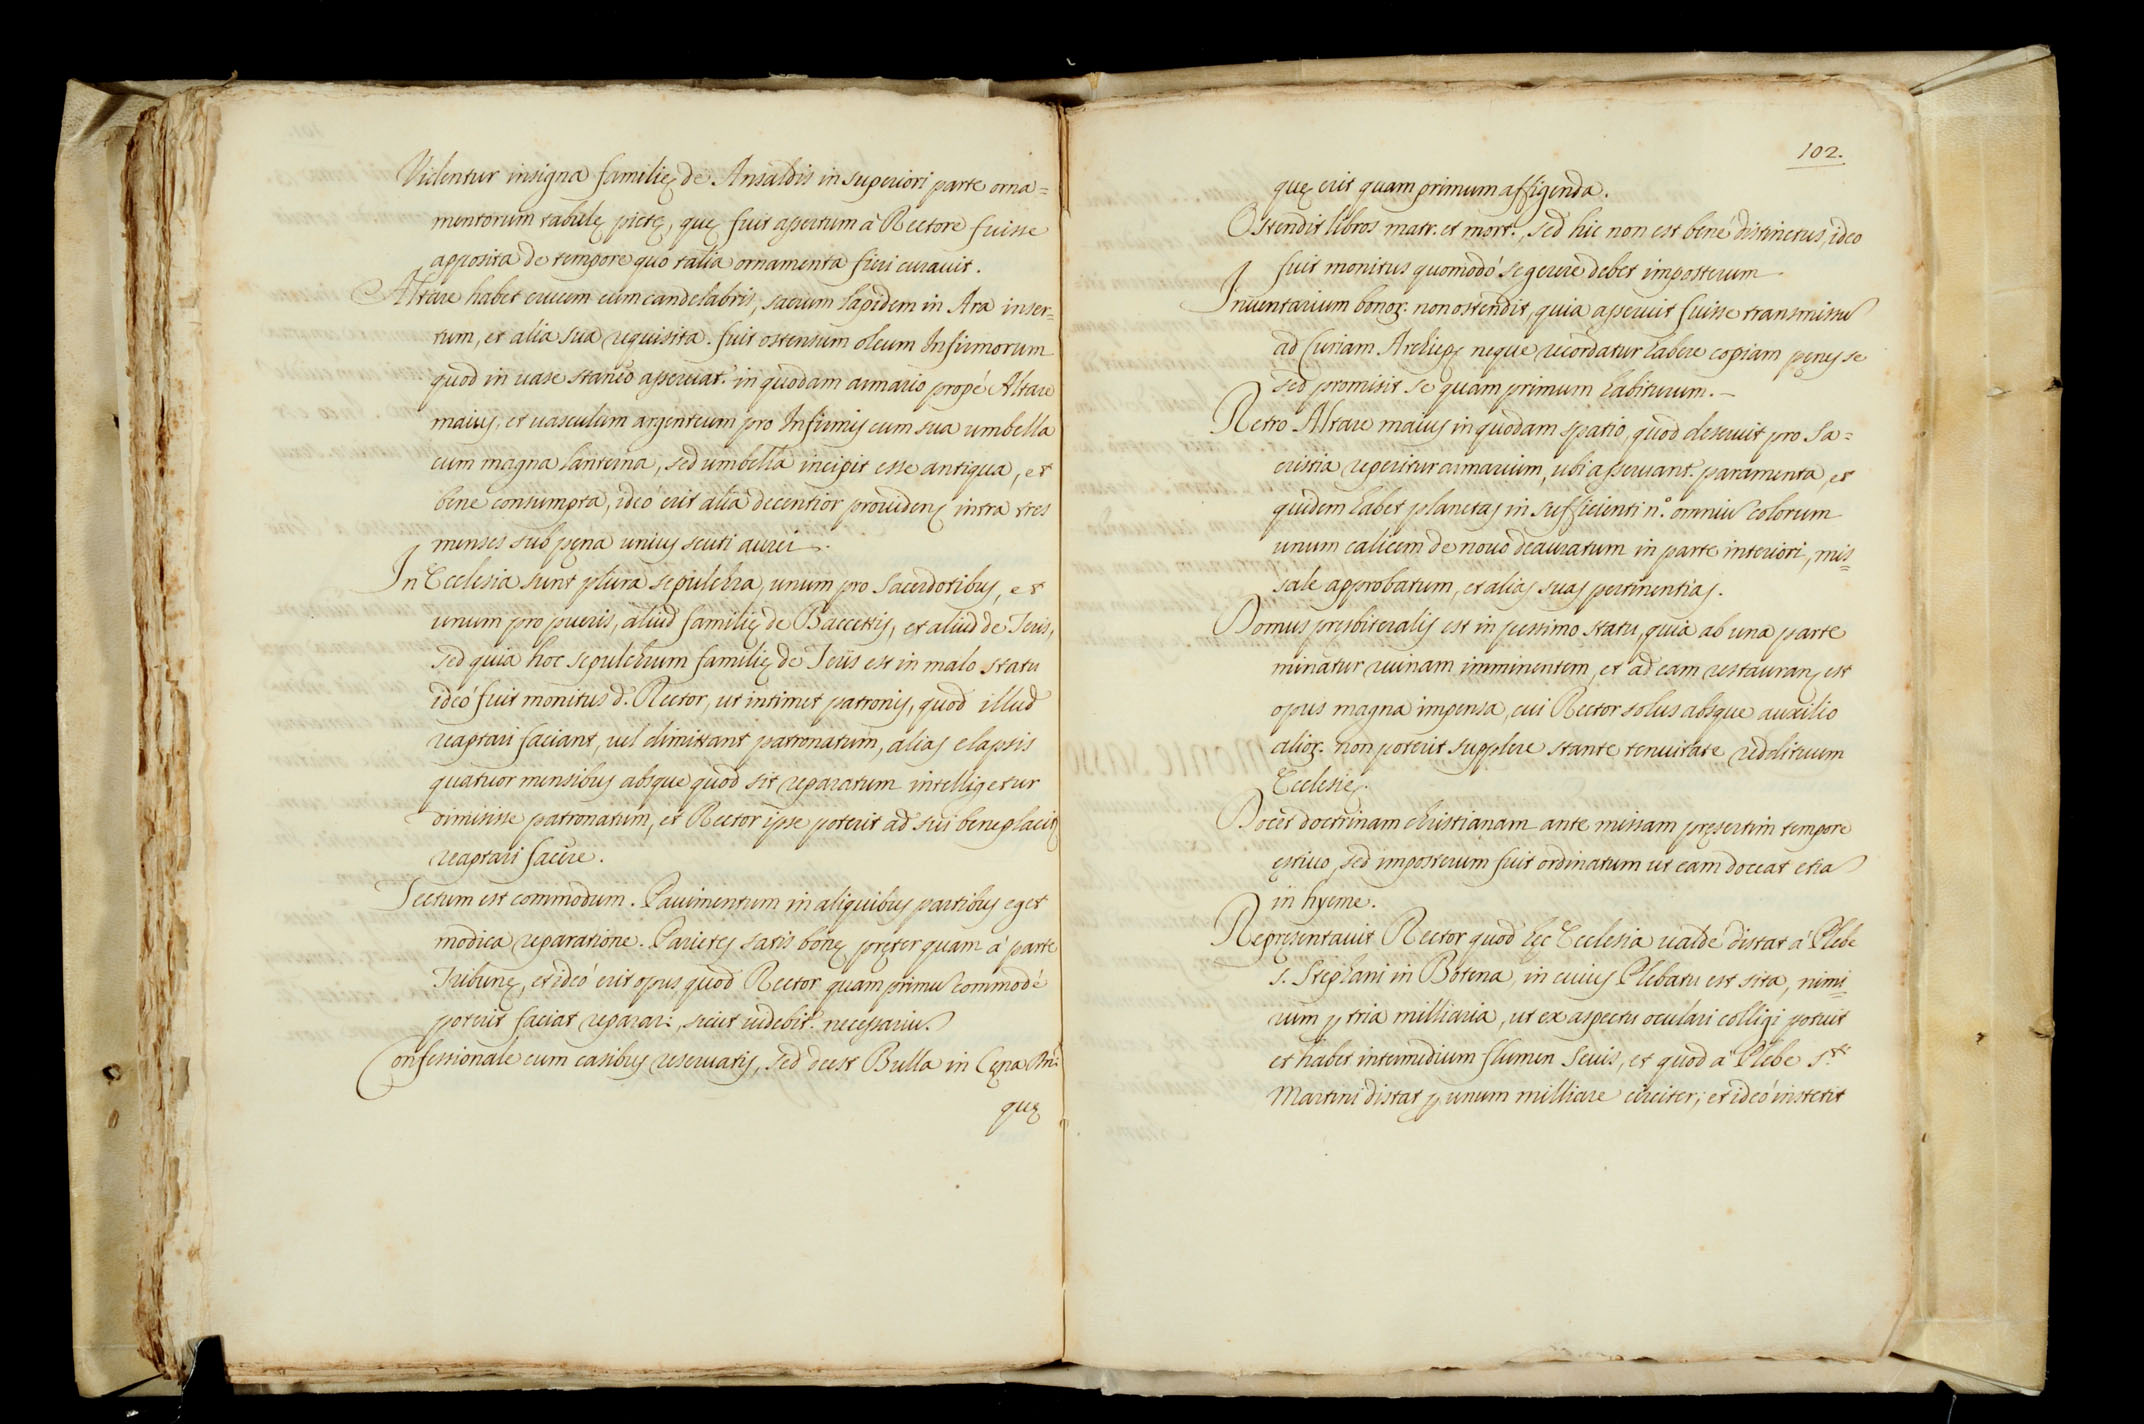 Videntur insigna familię de Ansaldis in superiori parte orna=
mentorum tabulę pictę, quę fuit apertum à Rectore fuisse
apposita de tempore quo talia ornamenta fieri curauit.
Altare habet crucem cum candelabris, sacrum lapidem in Ara inser=
tum, et alia sua requisita. fuit ostensum oleum Infirmorum
quod in uase staneo asseruat. in quodam armario propé Altare
maius, et uasculum argenteum pro Infirmis cum sua umbella
cum magna lanterna, sed umbella incipit esse antiqua, et
bene consumpta, ideó erit alia decentior prouiden intra tres
menses sub pęna unius scuti aurei.
In Ecclesia sunt plura sepulchra, unum pro Sacerdotibus, et
unum pro pueris, aliud familię de Baccettis, et aliud de Teiis,
sed quia hoc sepulchrum familię de Teiis est in malo statu
ideó fuit monitus d. Rector, ut intimet patronis, quod illud
reaptari faciant, uel dimittant patronatum, alias elapsis
quatuor mensibus absque quod sit reparatum intelligetur
dimisisse patronatum, et Rector ipse poterit ad sui beneplacit
reaptari facere.
Tectum est commodum. Pauimentum in aliquibus partibus eget
modica reparatione. Parietes satis bonę pręter quam à parte
Tribunę, et ideó erit opus, quod Rector quam primu commodé
poterit faciat reparari, sicut uidebit. necessariu.
Confessionale cum casibus reseruatis, sed deest Bulla in Cęna Dni:
quę
102.
quę erit quam primum affigenda.
Ostendit libros matr. et mort., sed hic non est bené distinctus, ideo
fuit monitus quomodó se gerere debet imposterum.
Inuentarium bonor. non ostendit, quia asseruit fuisse transmissu
ad Curiam Archiep neque recordatur habere copiam pęnes se
sed promisit se quam primum habiturum.-
Retro Altare maius in quodam spatio, quod deseruit pro Sa=
cristia reperitur armarium, ubi asseruant. paramenta, et
quidem habet planetas in sufficienti n.º omniu colorum
unum calicem de nouo deauratum in parte interiori, mis=
sale approbatum, et alias suas pertinentias.
Domus presbiteralis est in pessimo statu, quia ab una parte
minatur ruinam imminentem, et ad eam restauran est
opus magna impensa, cui Rector solus absque auxilio
alior. non poterit supplere stante tenuitate reddituum
Ecclesię.
Docet doctrinam christianam ante missam pręsertim tempore
ęstiuo, sed imposterum fuit ordinatum ut eam doceat etia
in hyeme.
Representauit Rector quod hęc Ecclesia ualdé distat à Plebe
S. Stephani in Botena, in cuius Plebatu est sita, nimi=
rum p tria milliaria, ut ex aspectu oculari colligi potuit
et habet intermedium flumen Seuis, et quod à Plebe S.ti
Martini distat p unum milliare circiter, et ideó institit